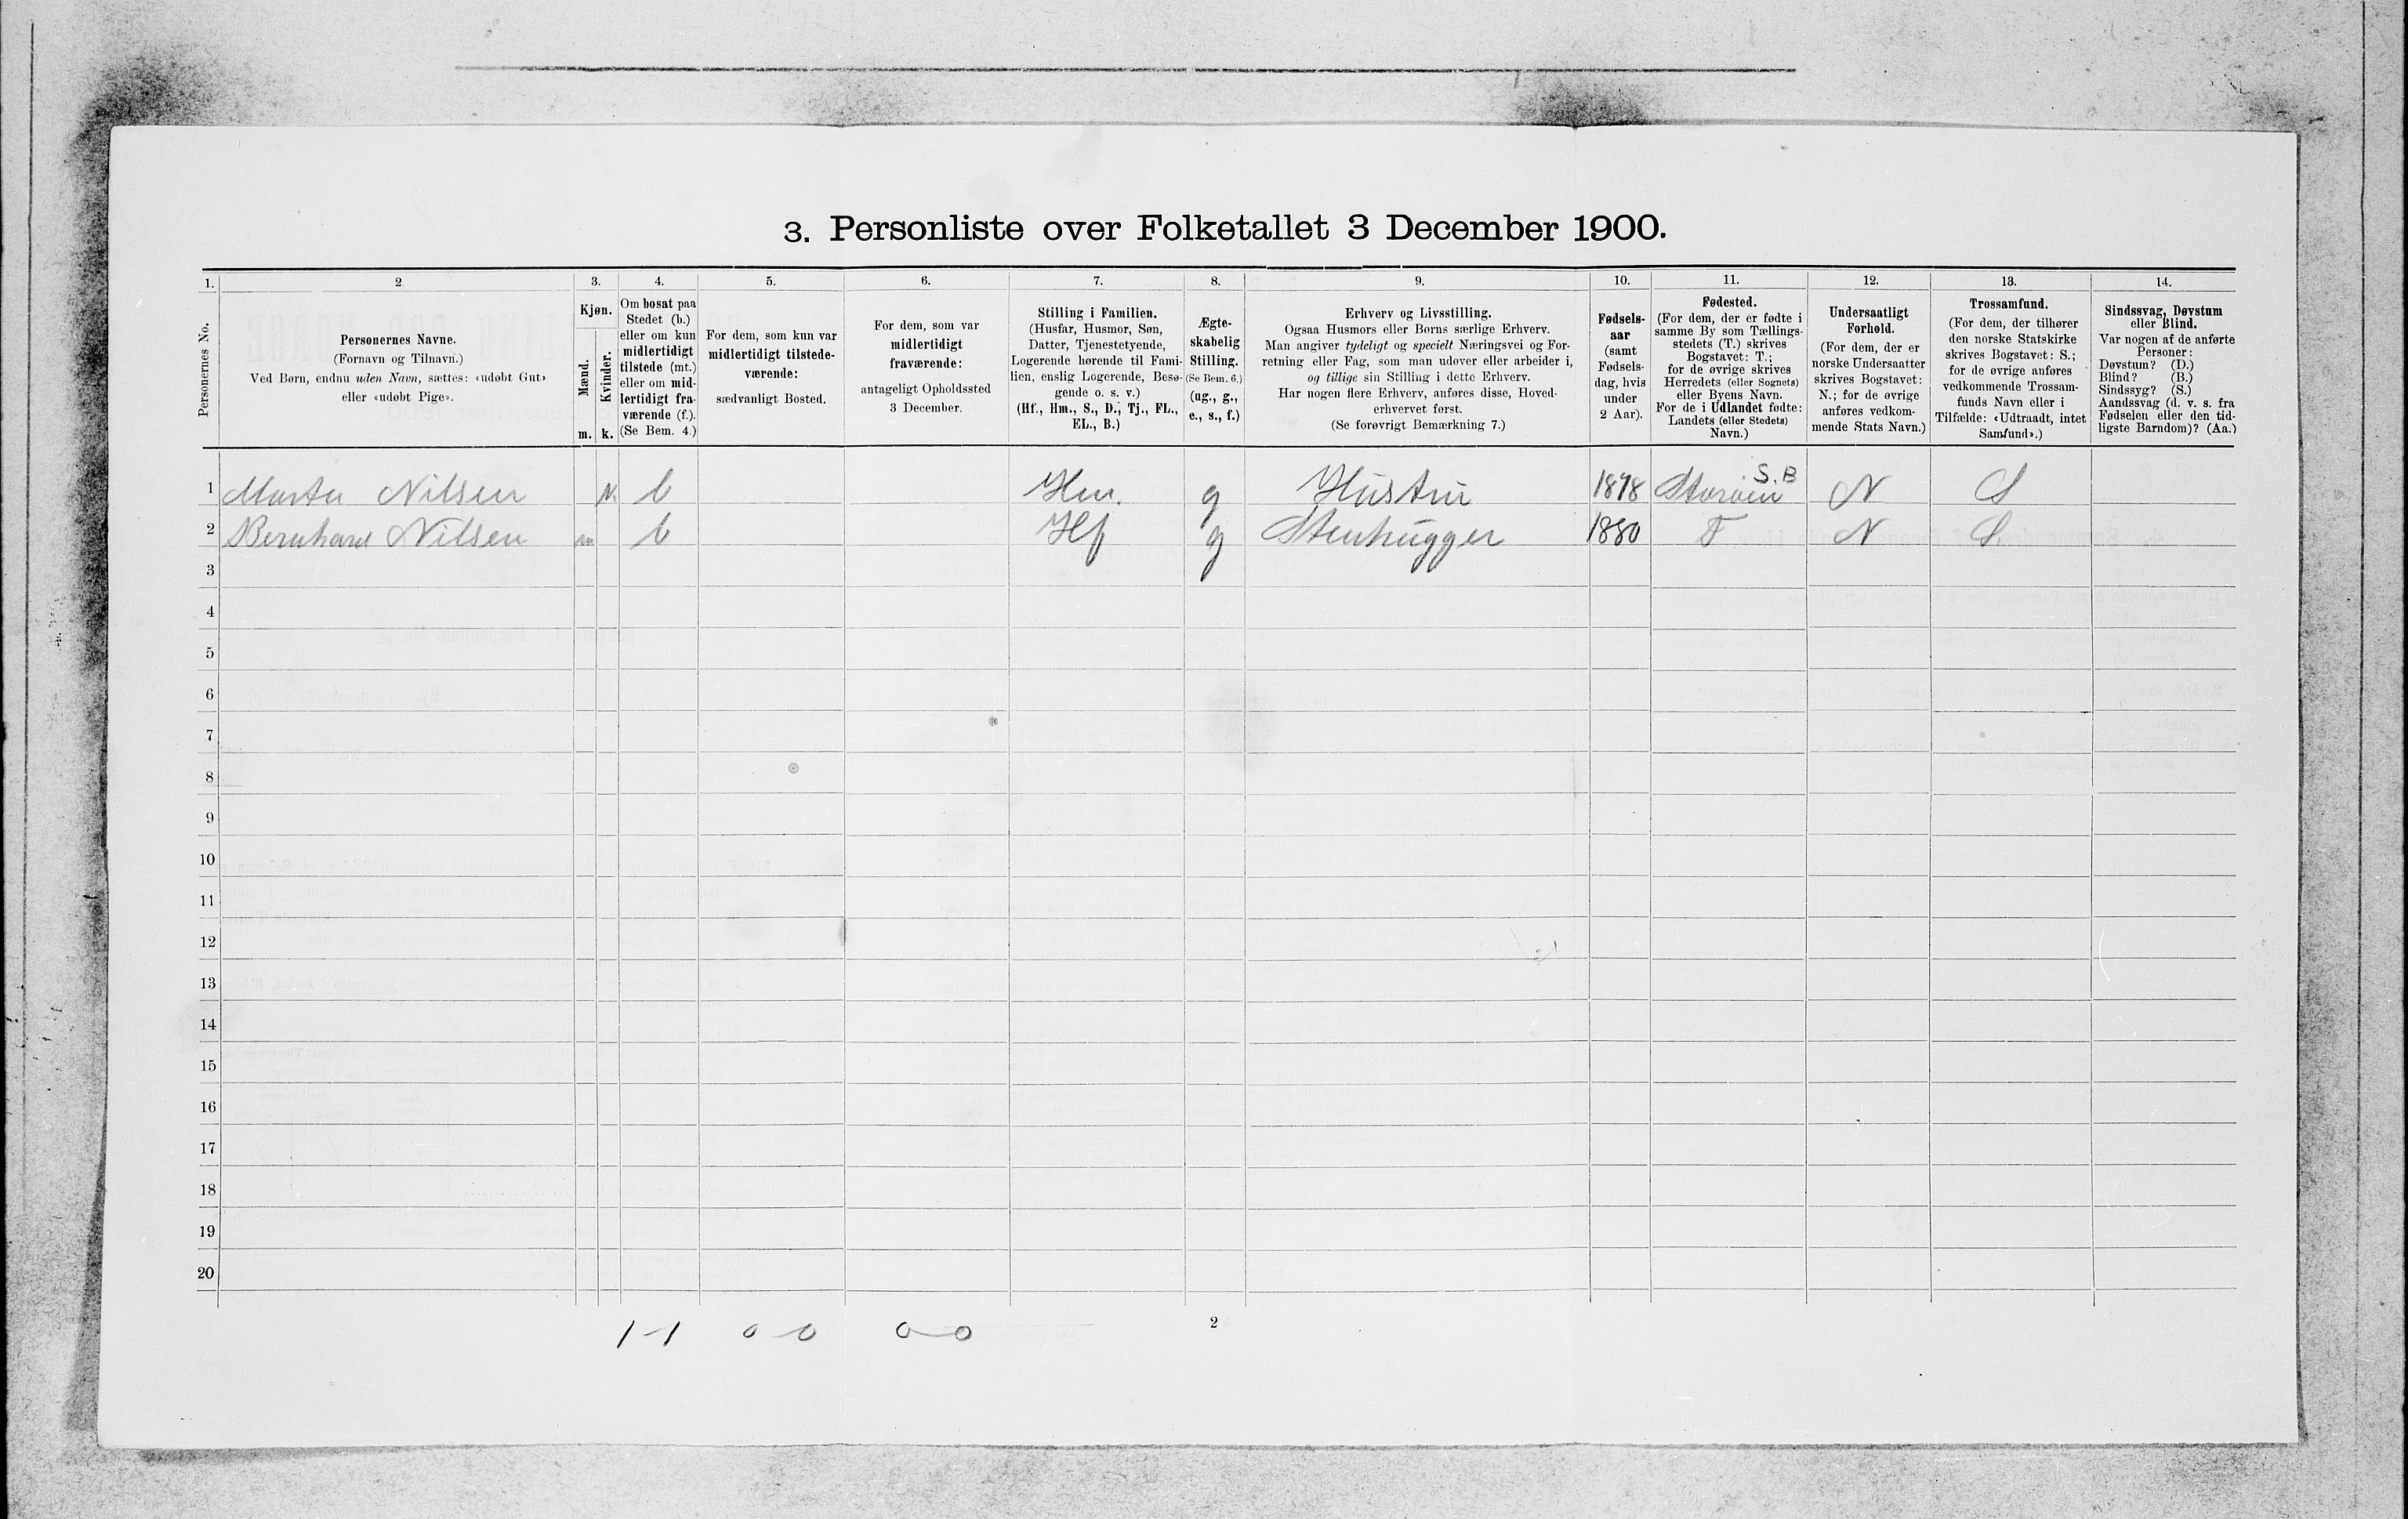 3. Personliste over Folketallet 3 December 1900.
1. 2 3. 4. 5. 6. 7. 8. 9. 10. 11. 12. 13. 14.
Personernes No.
Personernes Navne.
(Fornavn og Tilnavn.)
Ved Børn, endnu uden Navn, sættes: «udøbt Gut»
eller «udøbt Pige».
Kjøn.
Mænd.
Kvinder.
m. k.
Om bosat paa
Stedet (b.)
eller om kun
midlertidigt
tilstede (mt.)
eller om mid-
lertidigt fra-
værende (f.).
(Se Bem. 4.)
For dem, som kun var
midlertidigt tilstede-
værende:
sædvanligt Bosted.
For dem, som var
midlertidigt
fraværende:
antageligt Opholdssted
3 December.
Stilling i Familien.
(Husfar, Husmor, Søn,
Datter, Tjenestetyende,
Logerende hørende til Fami-
lien, enslig Logerende, Besø-
gende o. s. v.)
(Hf., Hm., S., D., Tj., FL.,
EL., B.)
Ægte-
skabelig
Stilling.
(Se Bem. 6.)
(ug., g.,
e., s., f.)
Erhverv og Livsstilling.
Ogsaa Husmors eller Børns særlige Erhverv.
Man angiver tydeligt og specielt Næringsvei og For-
retning eller Fag, som man udøver eller arbeider i,
og tillige sin Stilling i dette Erhverv.
Har nogen flere Erhverv, anføres disse, Hoved-
erhvervet først.
(Se forøvrigt Bemærkning 7.)
Fødsels-
aar
(samt
Fødsels-
dag, hvis
under
2 Aar).
Fødested.
(For dem, der er fødte i
samme By som Tællings-
stedets (T.) skrives
Bogstavet: T.;
for de øvrige skrives
Herredets (eller Sognets)
eller Byens Navn.
For de i Udlandet fødte:
Landets (eller Stedets)
Navn.)
Undersaatligt
Forhold.
(For dem, der er
norske Undersaatter
skrives Bogstavet:
N.; for de øvrige
anføres vedkom-
mende Stats Navn.)
Trossamfund.
(For dem, der tilhører
den norske Statskirke
skrives Bogstavet: S.;
for de øvrige anføres
vedkommende Trossam-
funds Navn eller i
Tilfælde: «Udtraadt, intet
Samfund».)
Sindssvag, Døvstum
eller Blind.
Var nogen af de anførte
Personer:
Døvstum? (D.)
Blind? (B.)
Sindssyg? (S.)
Aandssvag (d. v. s. fra
Fødselen eller den tid-
ligste Barndom)? (Aa.)
S.B
1 Marta Nilsen b Hm. g Hustru 1878 N S
2 Bernhard Nilsen m b Hf g Stenhugger 1880 T N S.
3
4
5
6
7
8
9
10
11
12
13
14
15
16
17
18
19
20
1-1 0-0 0-0
2